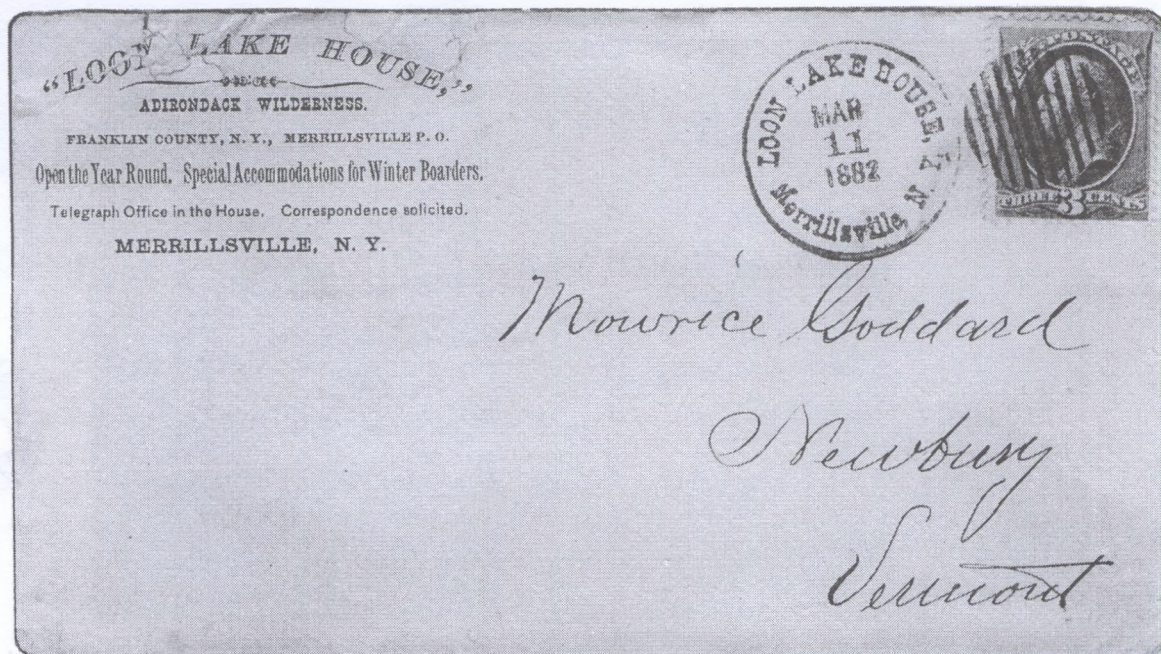 "LOON LAKE HOUSE,"
ADIRONDACK WILDERNESS.
FRANKLIN COUNTY, N. Y., MERRILLSVILLE P. O.
Open the Year Round. Special Accommodations for Winter Boarders.
Telegraph Office in the House. Correspondence solicited.
MERRILLSVILLE, N. Y.
LOON LAKE HOUSE,
MAR
11
1882
Merrillsville, N. Y.
THREE 3 CENTS
Mowrice Goddard
Newbury
Vermont